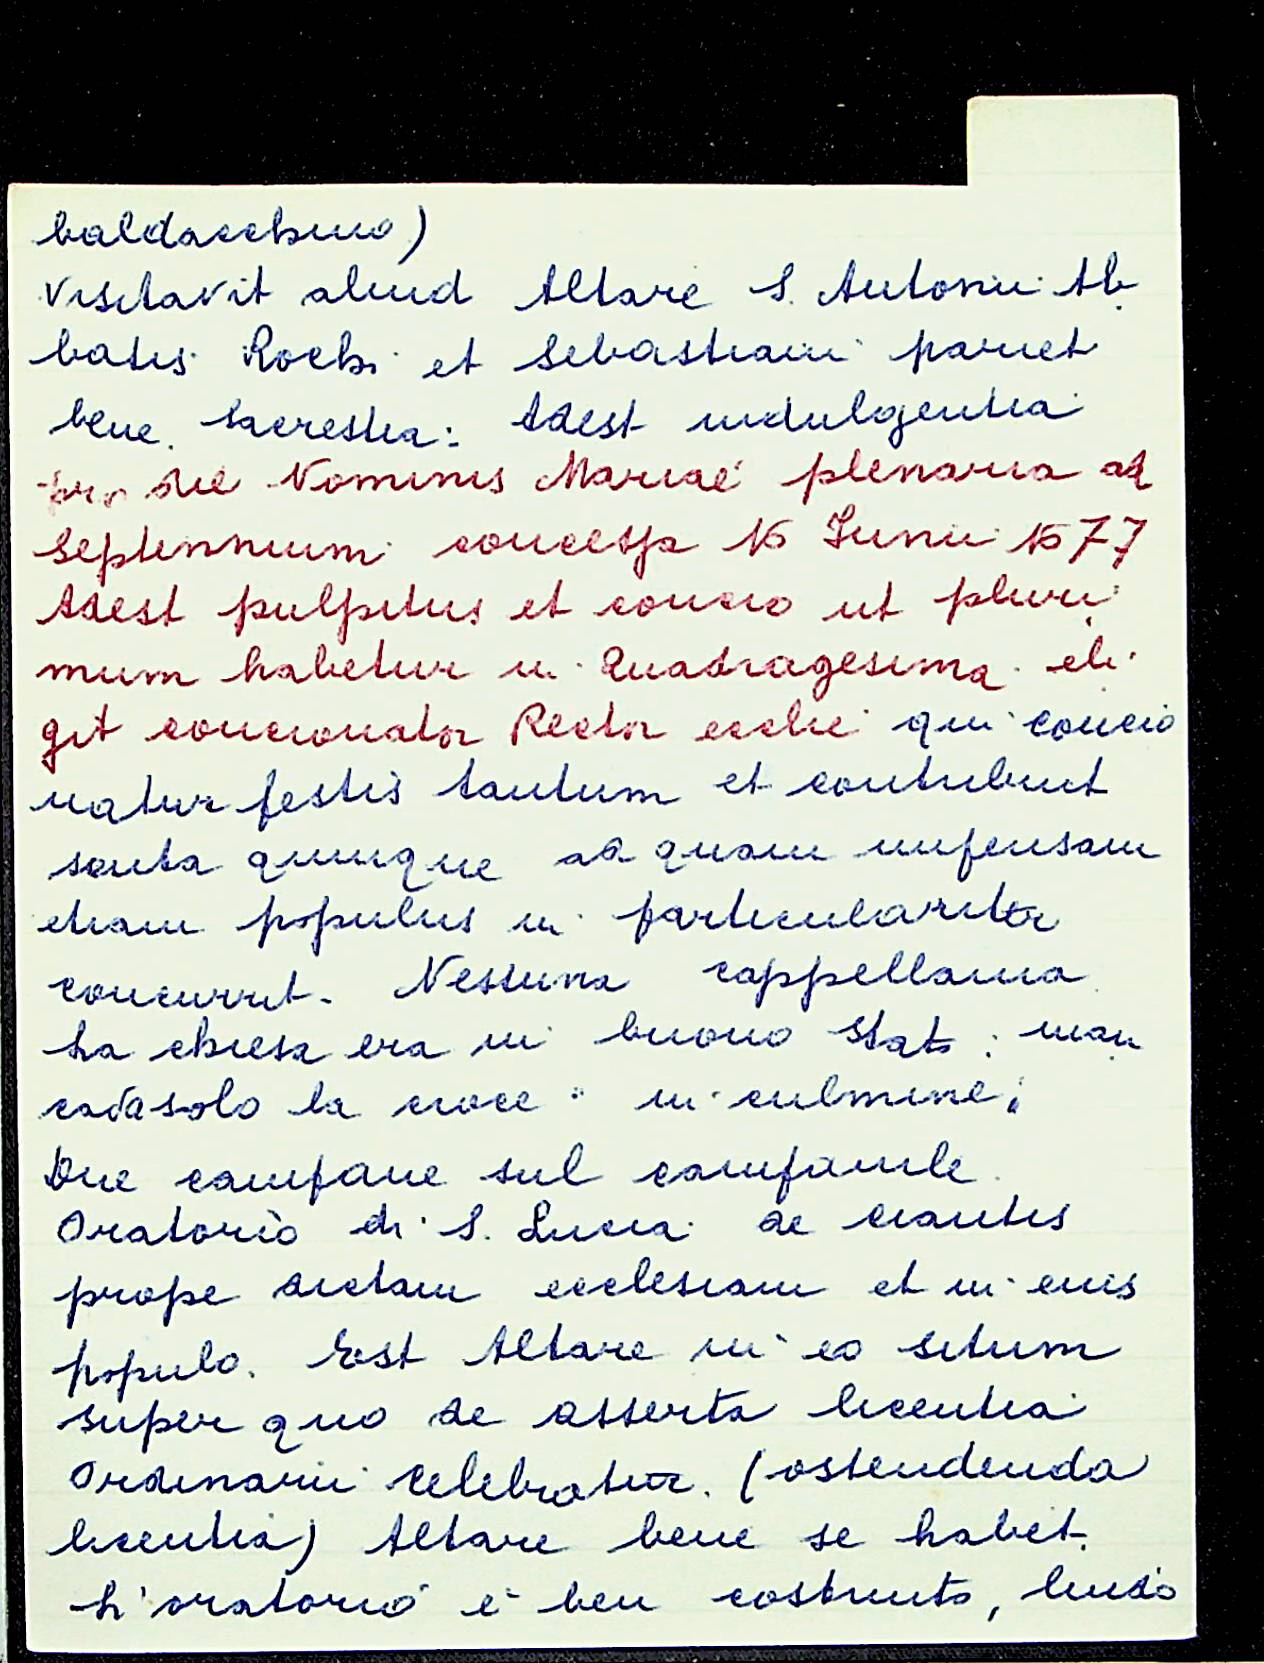 baldacchino)
Visitavit aliud Altare S. Antonii Ab
batis Rochi et Sebastiani paruet
bene. Sacrestia: Adest indulgentia
pro die Nominis Mariae plenaria ad
septennium concessa 16 Junii 1677
Adest pulpitus et concio ut pluri
mum habetur in Quadragesima. eli
git concionator Rector ecclie qui concio
natur festis tantum et contribuit
scuta quinque ad quam impensam
etiam populus in particulariter
concurrit. Nessuna cappellania
La chiesa era in buono stato: man
cava solo la croce in culmine;
Due campane sul campanile
Oratorio di S. Lucia de Ciantis
prope dictam ecclesiam et in eius
populo. Est Altare in eo situm
super quo de asserta licentia
Ordinarii celebratur. (ostendenda
licentia) Altare bene se habet.
L'oratorio è ben costruito, lindo